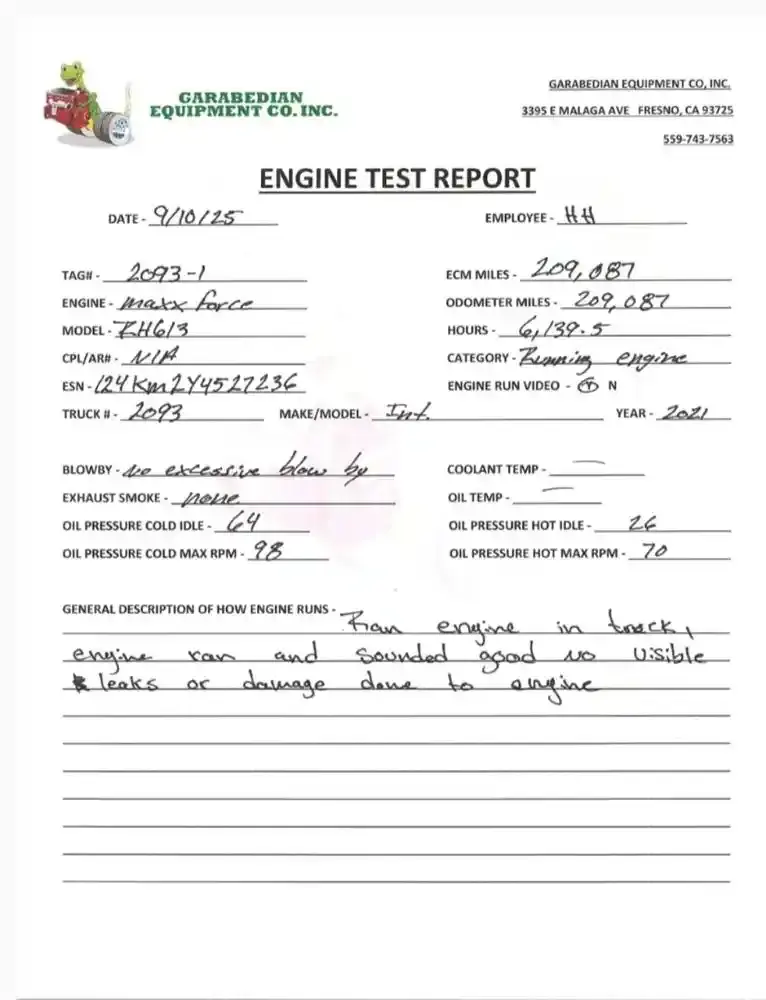 GARABEDIAN
EQUIPMENT CO. INC.
GARABEDIAN EQUIPMENT CO, INC.
3395 E MALAGA AVE FRESNO, CA 93725
559-743-7563
ENGINE TEST REPORT
DATE - 9/10/25 EMPLOYEE - HH
TAG# - 2093-1 ECM MILES - 209,087
ENGINE - maxx force ODOMETER MILES - 209,087
MODEL - RH613 HOURS - 6,139.5
CPL/AR# - N/A CATEGORY - Running engine
ESN - 124KM2Y4527236 ENGINE RUN VIDEO - Y N
TRUCK # - 2093 MAKE/MODEL - Int. YEAR - 2021
BLOWBY - No excessive blow by COOLANT TEMP - —
EXHAUST SMOKE - none OIL TEMP - —
OIL PRESSURE COLD IDLE - 64 OIL PRESSURE HOT IDLE - 26
OIL PRESSURE COLD MAX RPM - 98 OIL PRESSURE HOT MAX RPM - 70
GENERAL DESCRIPTION OF HOW ENGINE RUNS - Ran engine in truck,
engine ran and sounded good no visible
leaks or damage done to engine